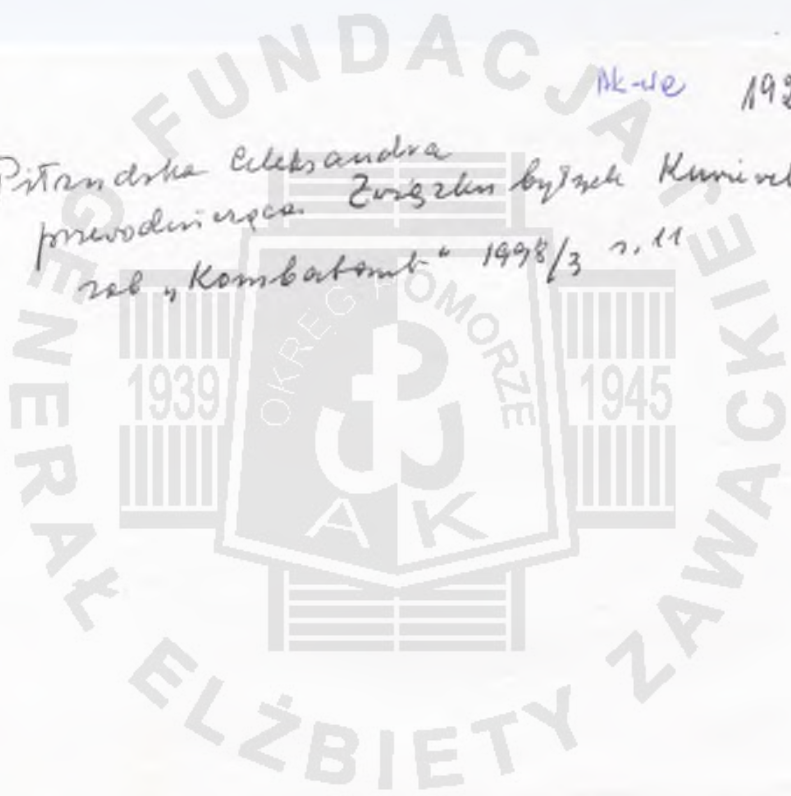 AK-wе 192
Piłsudska Aleksandra
przewodnicząca Związku byłych
zob „Kombatant" 1998/3 s. 11
FUNDACJA
GENERAŁ ELŻBIETY ZAWACKIEJ
OKRĘG POMORZE
1939 1945
A K